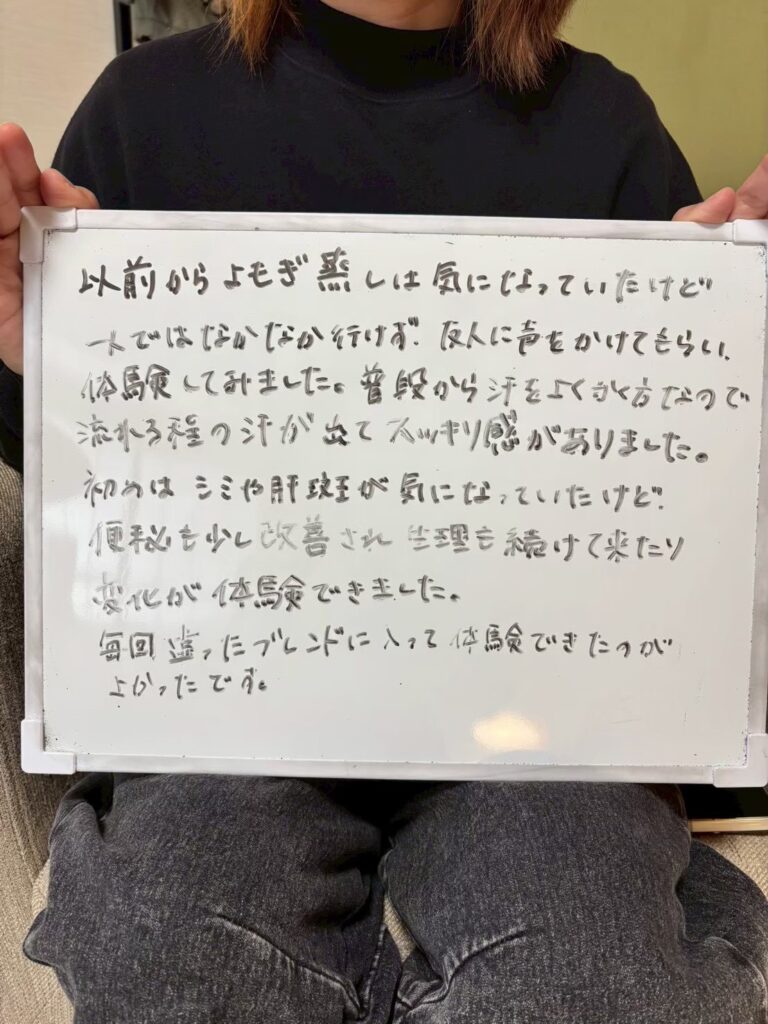 以前からよもぎ蒸しは気になっていたけど
一人ではなかなか行けず、友人に声をかけてもらい、
体験してみました。普段から汗をよくかく方なので
流れる程の汗が出てスッキリ感がありました。
初めはシミや肝斑が気になっていたけど、
便秘も少し改善され生理も続けて来たり
変化が体験できました。
毎回違ったブレンドに入って体験できたのが
よかったです。